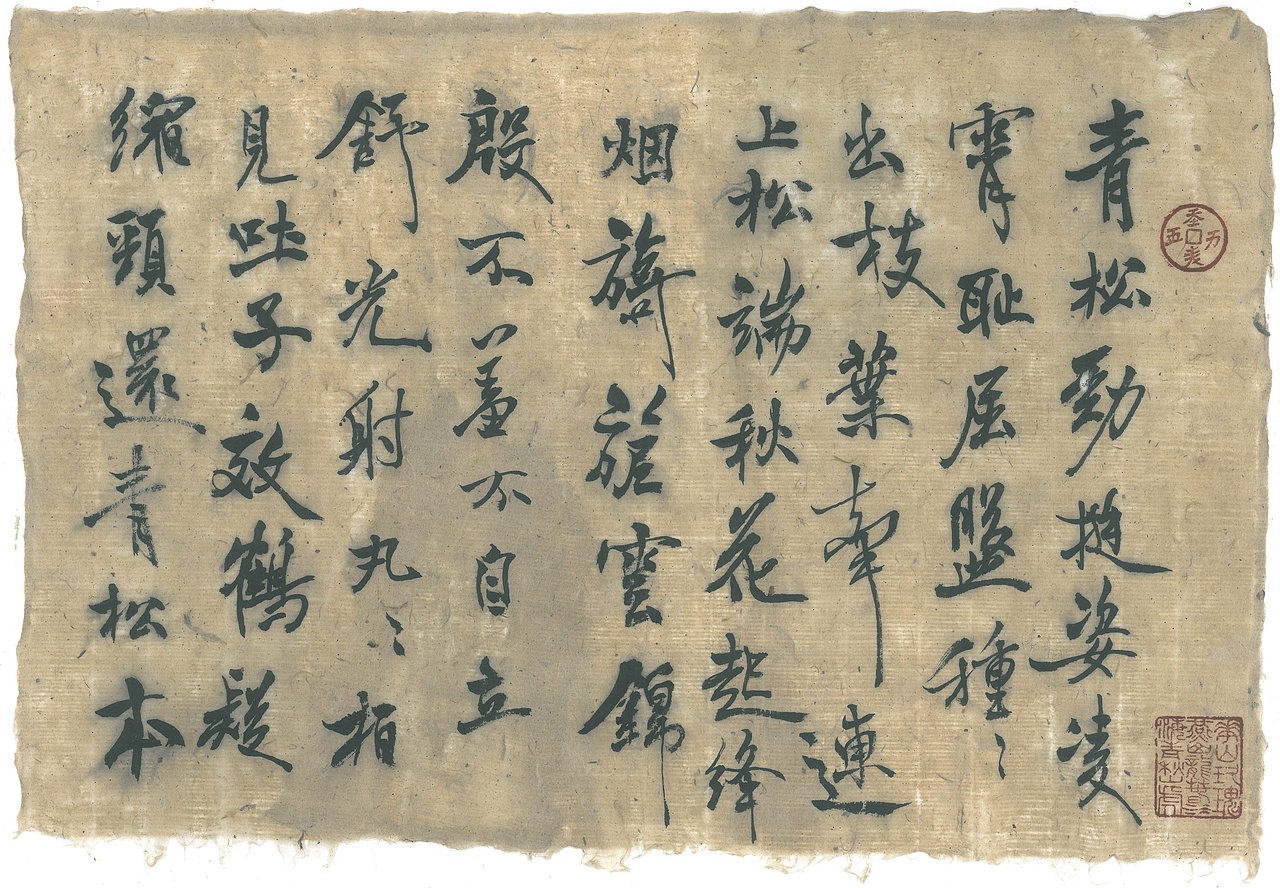 青松勁挺姿凌
霄耻屈盤種〻
出枝葉牽連
上松端秋花起絳
烟旖旎雲錦
殷不羞不自立
舒光射丸〻柏
見吐子效鶴疑
縮頸還青松本